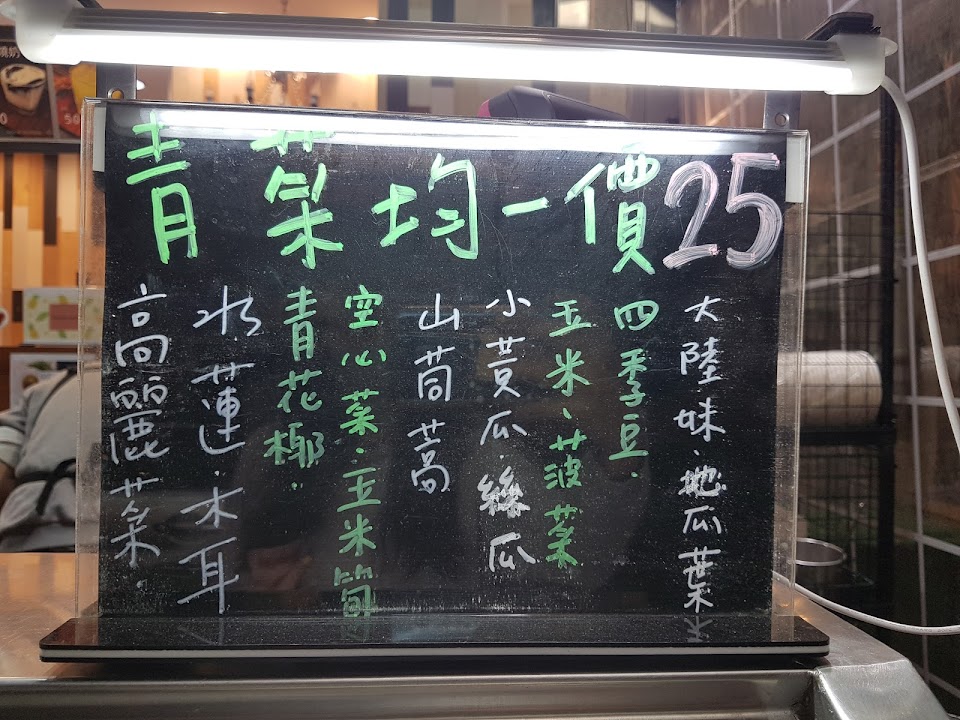 青菜均一價25
大陸妹、地瓜葉
四季豆.
玉米、菠菜
小黃瓜.絲瓜
山茼蒿
空心菜.玉米筍
青花椰.
水蓮.木耳
高麗菜.